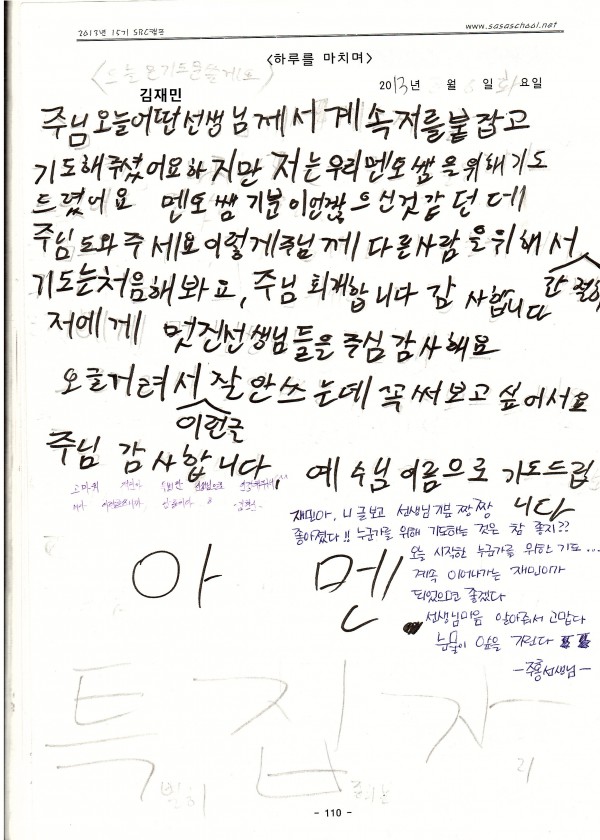 2013년 15기 SRC캠프
www.sasaschool.net
<하루를 마치며>
<오늘은 기도문 쓸게요>
2013년 월 6 일 화요일
김재민
주님 오늘 어떤 선생님께서 계속 저를 붙잡고
기도해 주셨어요 하지만 저는 우리 멘토 쌤을 위해 기도
드렸어요 멘토 쌤 기분이 언짢으신것 같던데
주님 도와 주세요 이렇게 주님께 다른사람을 위해서
간절히
기도는 처음해봐요, 주님 회개합니다 감사합니다
저에게 멋진선생님들을 주심 감사해요
오글거려서 잘 안쓰는데 꼭 써보고 싶어서요
이런글
주님 감사합니다, 예수님 이름으로 기도드립
니다
고마워
재민아, 니 글보고 선생님 기분 짱짱
좋아졌다!! 누군가를 위해 기도하는 것은 참 좋지??
오늘 시작한 누군가를 위한 기도...
계속 이어나가는 재민이가
되었으면 좋겠다
선생님마음 알아줘서 고맙다
눈물이 앞을 가린다
-주홍선생님-
아 멘
특 집 자
별히
리
- 110 -